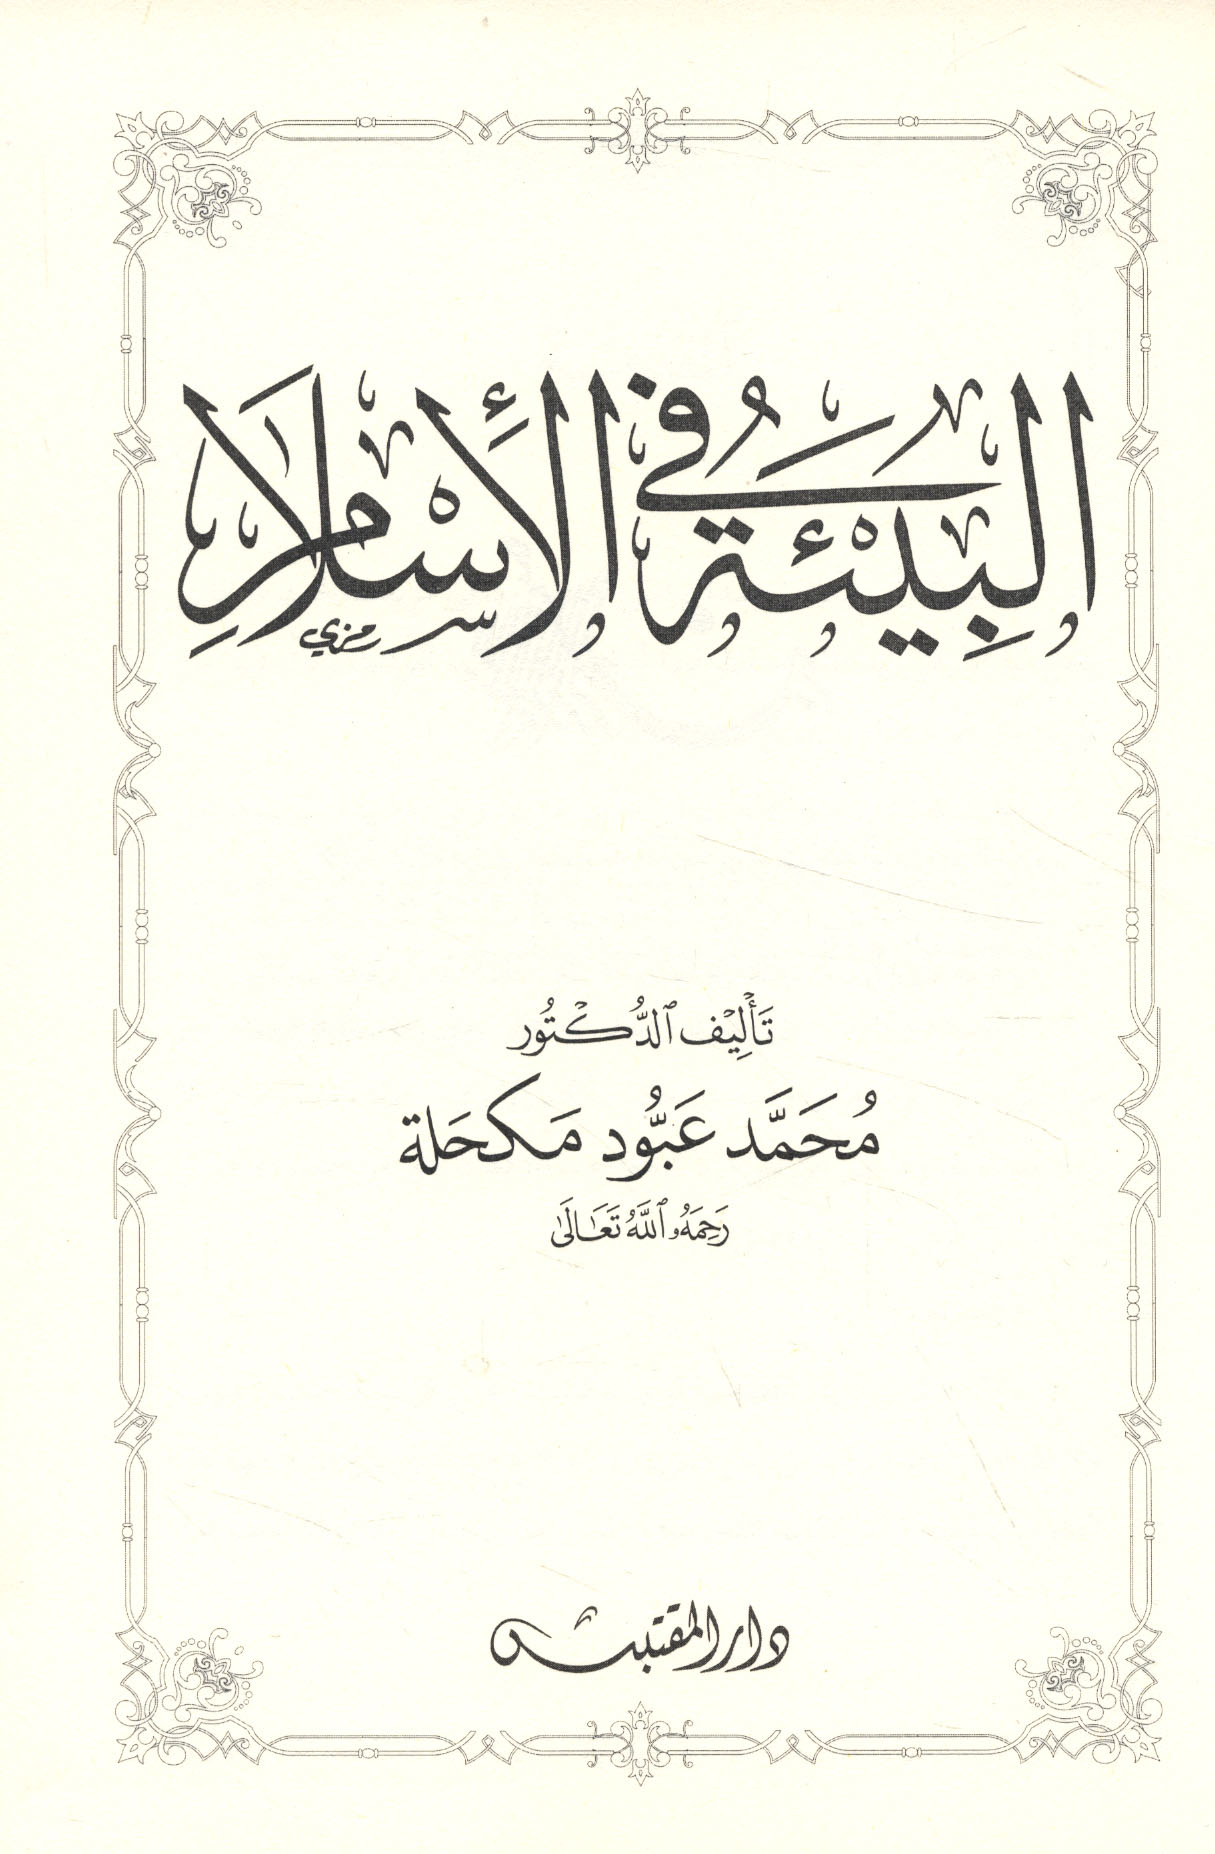 البِيئَة في الإِسْلَامِ
رمزي
تَأْلِيْف ٱلدُّكْتُور
مُحَمَّد عَبُّود مَكحَلة
رَحِمَهُ ٱللَّهُ تَعَالَىٰ
دار المقتبس